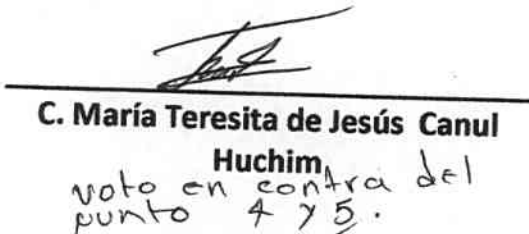 C. María Teresita de Jesús Canul
Huchim
voto en contra del
punto 4 y 5.